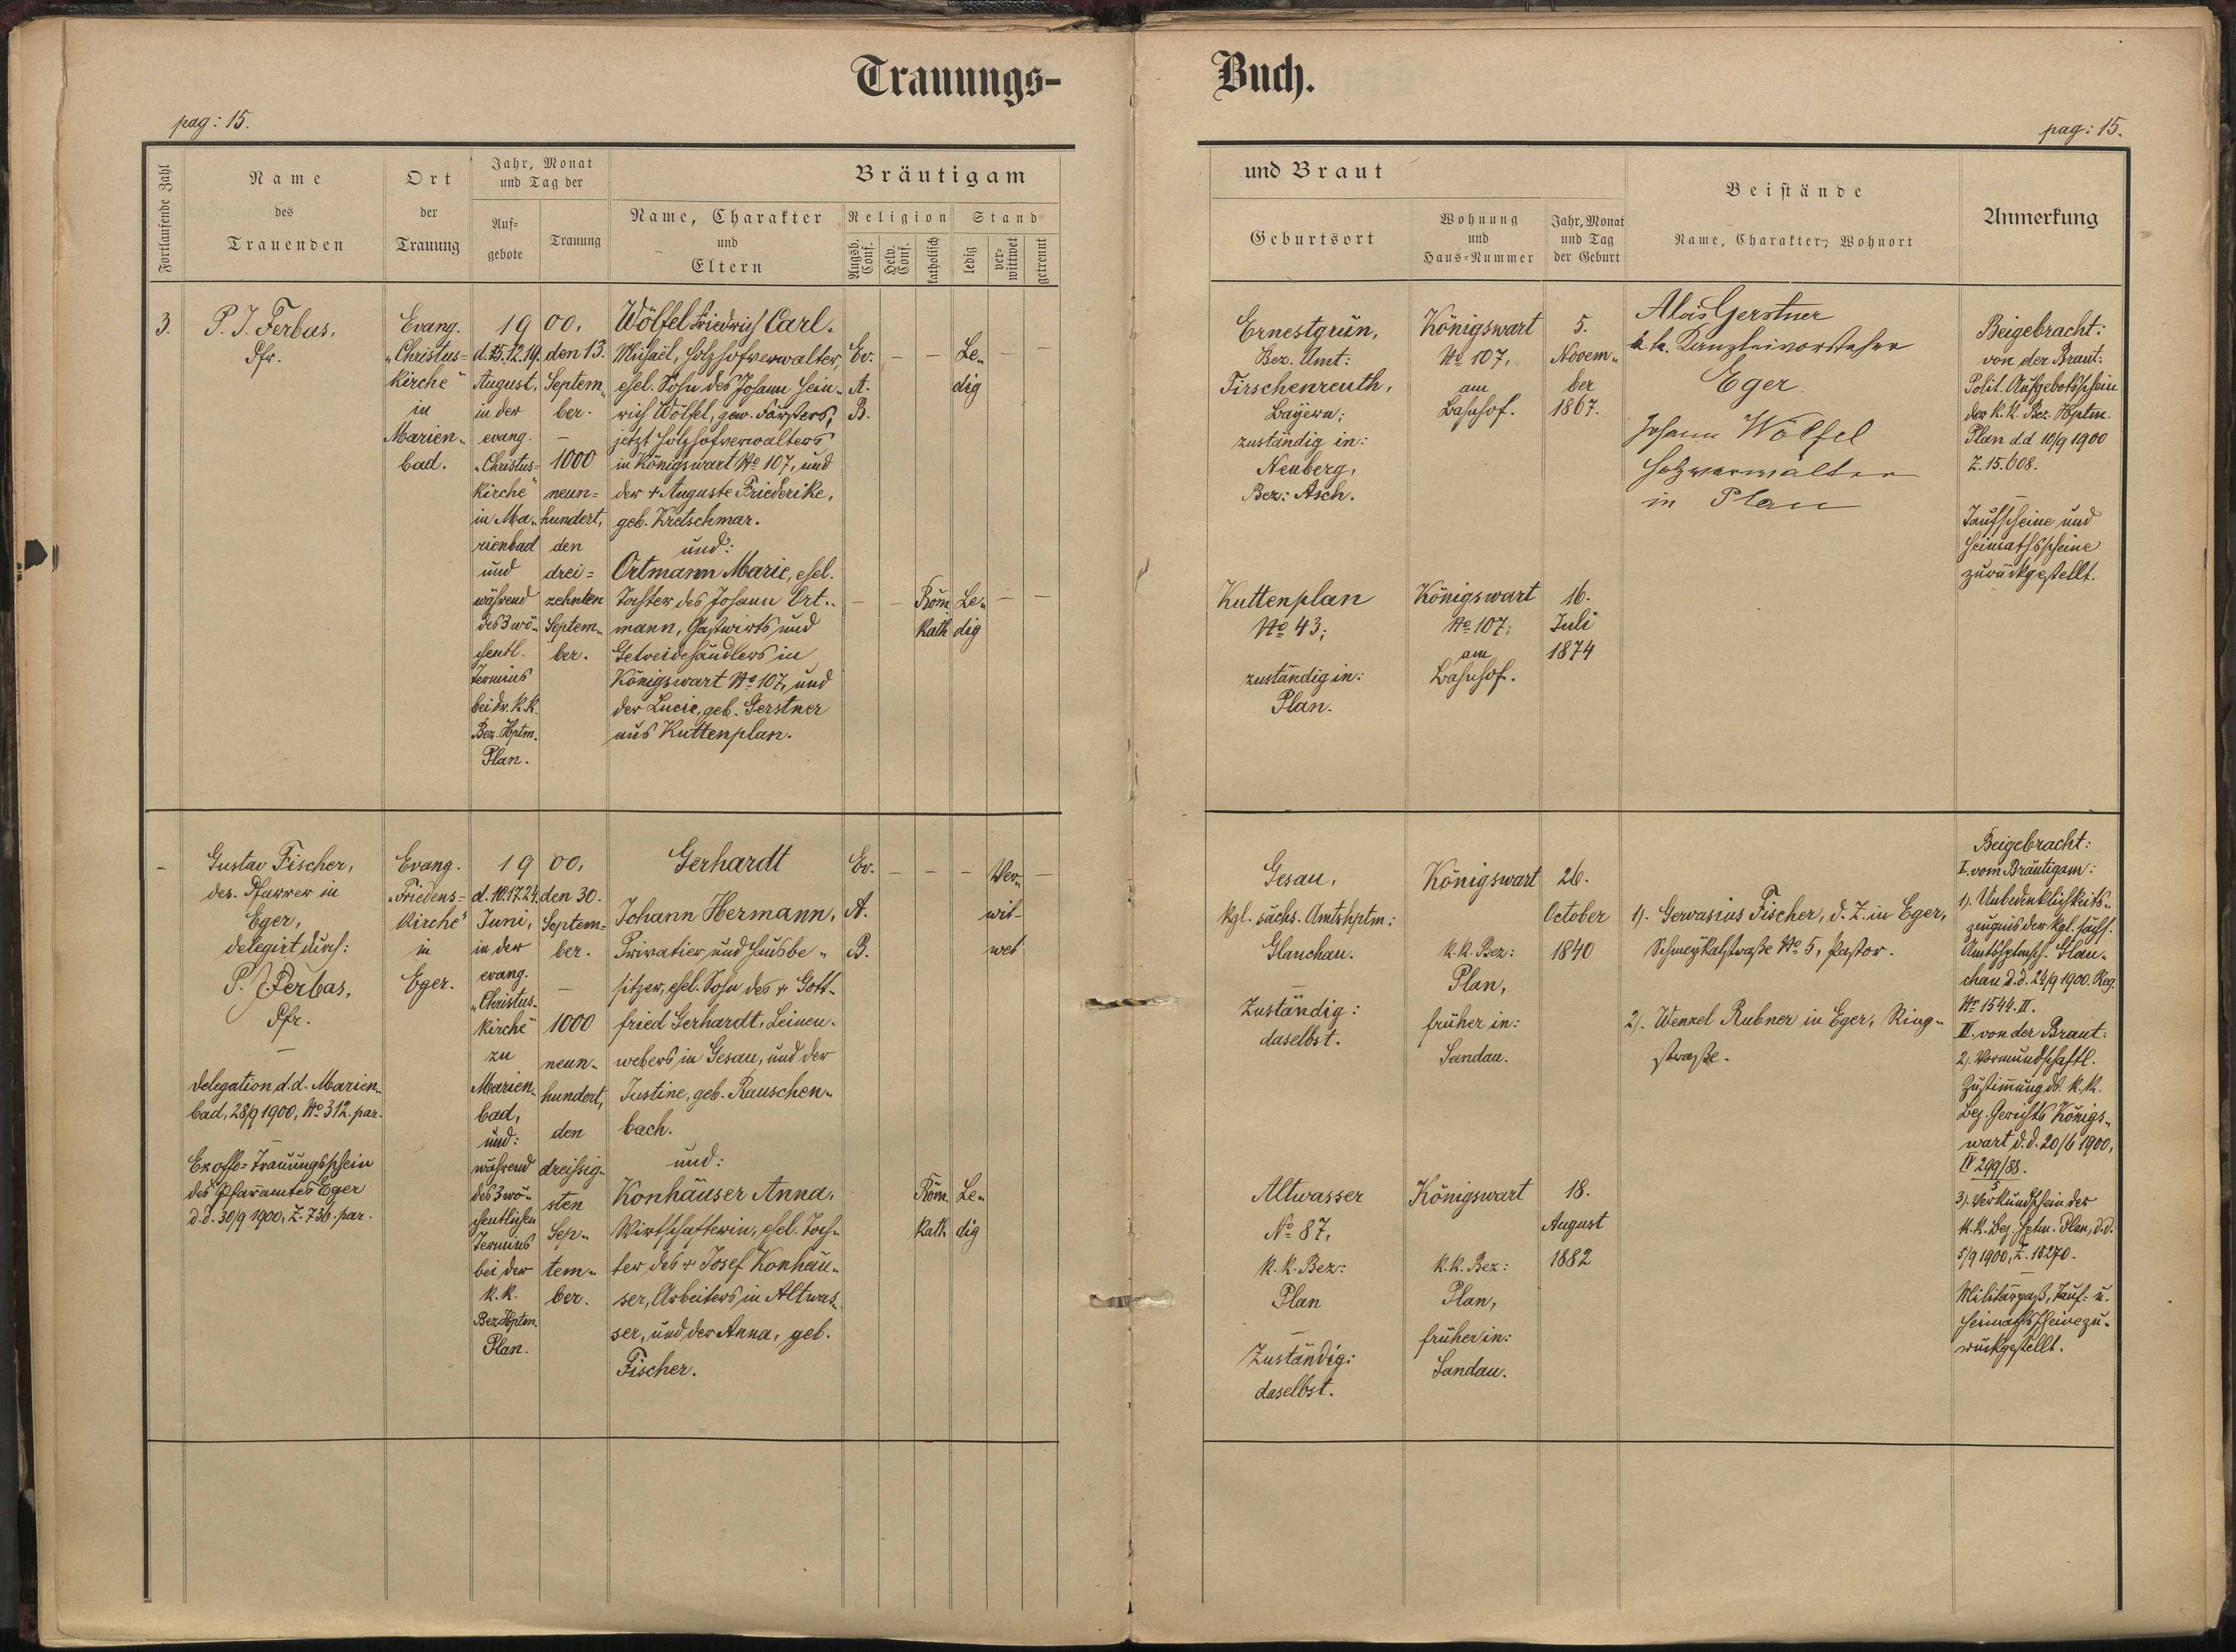 Trauungs-
Buch.
pag: 15.
pag: 15.
Fortlaufende Zahl
Name
des
Trauenden
Ort
der
Trauung
Jahr, Monat
und Tag der
Auf-
gebote
Trauung
Bräutigam
Name, Charakter
und
Eltern
Religion
Augsb. Conf.
Helv. Conf.
katholisch
Stand
ledig
ver-
wittwet
getrennt
und Braut
Geburtsort
Wohnung
und
Haus-Nummer
Jahr, Monat
und Tag
der Geburt
Beistände
Name, Charakter, Wohnort
Anmerkung
3.
P. J. Ferbas,
Pfr.
Evang.
„Christus=
Kirche"
in
Marien„
bad.
1900.
d. 5. 12. 19.
August,
in der
evang.
„Christus=
Kirche"
in Ma„
rienbad
und
während
des 3 wö„
chentl.
Termins
bei dr. K. K.
Bez. Hptm.
Plan.
den 13.
Septem„
ber.
—
1000
neun=
hundert,
den
drei=
zehnten
Septem„
ber.
Wölfel Friedrich Carl
Michael, Holzhofverwalter,
ehel. Sohn des Johann Hein„
rich Wölfel, gew. Försters,
jetzt Holzhofverwalters
in Königswart No 107, und
der + Auguste Friederike,
geb. Kretschmar.
und:
Ortmann Marie, ehel.
Tochter des Johann Ort„
mann, Gastwirts und
Getreidehändlers in
Königswart No 107, und
der Lucie, geb. Gerstner
aus Kuttenplan.
Ev.
A.
B.
— —
Le„
dig
— —
— —
Röm
Kath
Le„
dig
— —
Ernestgrün,
Bez. Amt:
Tirschenreuth,
Bayern;
zuständig in:
Neuberg,
Bez: Asch.
Königswart
No 107,
am
Bahnhof.
5.
Novem„
ber
1867.
Alois Gerstner
k. k. Kanzleivorsteher
Eger
Johann Wölfel
Holzverwalter
in Plan
Beigebracht:
von der Braut:
Polit. Aufgebotsschein
der K. K. Bez. Hptm.
Plan d.d 10/9 1900
Z. 15.608.
—
Taufscheine und
Heimathsscheine
zurückgestellt.
Kuttenplan
No 43;
zuständig in:
Plan.
Königswart
No 107;
am
Bahnhof.
16.
Juli
1874
—
Gustav Fischer,
des. Pfarrer in
Eger,
delegirt durch:
P. J. Ferbas,
Pfr.
—
Delegation, d.d. Marien„
bad, 28/9 1900, No 312. par.
—
Ex offo= Trauungsschein
des Pfarramtes Eger
d.d. 30/9 1900, Z. 736. par.
Evang.
„Friedens=
Kirche"
in
Eger.
1900.
d. 10. 17. 24.
Juni,
in der
evang.
„Christus-
Kirche"
zu
Marien„
bad,
und:
während
des 3 wö„
chentlichen
Termins
bei der
K. K.
Bez Hptm.
Plan.
den 30.
Septem=
ber.
—
1000
neun„
hundert,
den
dreissig„
sten
Sep„
tem„
ber.
Gerhardt
Johann Hermann,
Privatier und Hausbe„
sitzer, ehel. Sohn des + Gott„
fried Gerhardt, Leinen„
webers in Gesau, und der
Justine, geb. Rauschen„
bach.
und:
Konhäuser Anna,
Wirtschafterin, ehel. Toch„
ter, des + Josef Konhäu„
ser, Arbeiters in Altwas„
ser, und der Anna, geb.
Fischer.
Ev.
A.
B.
— — —
Ver„
wit„
wet
—
Röm
Kath
Le„
dig
Gesau,
Kgl. sächs. Amtshptm:
Glauchau.
—
Zuständig:
daselbst.
Königswart
K. K. Bez:
Plan,
früher in:
Sandau.
26.
October
1840
1). Gervasius Fischer, d. Z. in Eger,
Schmeykalstraße No 5, Pastor.
2). Wenzel Rubner in Eger, Ring„
straße.
Beigebracht:
I. vom Bräutigam:
1). Unbedenklichkeits„
zeugnis der kgl. sächs.
Amtshptmsch. Glau„
chau d.d. 24/9 1900. Reg.
No 1544. II.
II. von der Braut:
2). Vormundschaftl.
Zustimung ds. K. K.
Bez. Gerichts Königs„
wart d.d. 20/6 1900,
IV 299/88.
5
3). Verkündschein der
K. K. Bez. Hptm. Plan, d.d.
5/9 1900, Z. 15270.
—
Militärpaß, Tauf- u.
Heimathsscheine zu„
rückgestellt.
Altwasser
No 87,
K. K. Bez:
Plan
—
Zuständig:
daselbst.
Königswart
K. K. Bez:
Plan,
früher in:
Sandau.
18.
August
1882